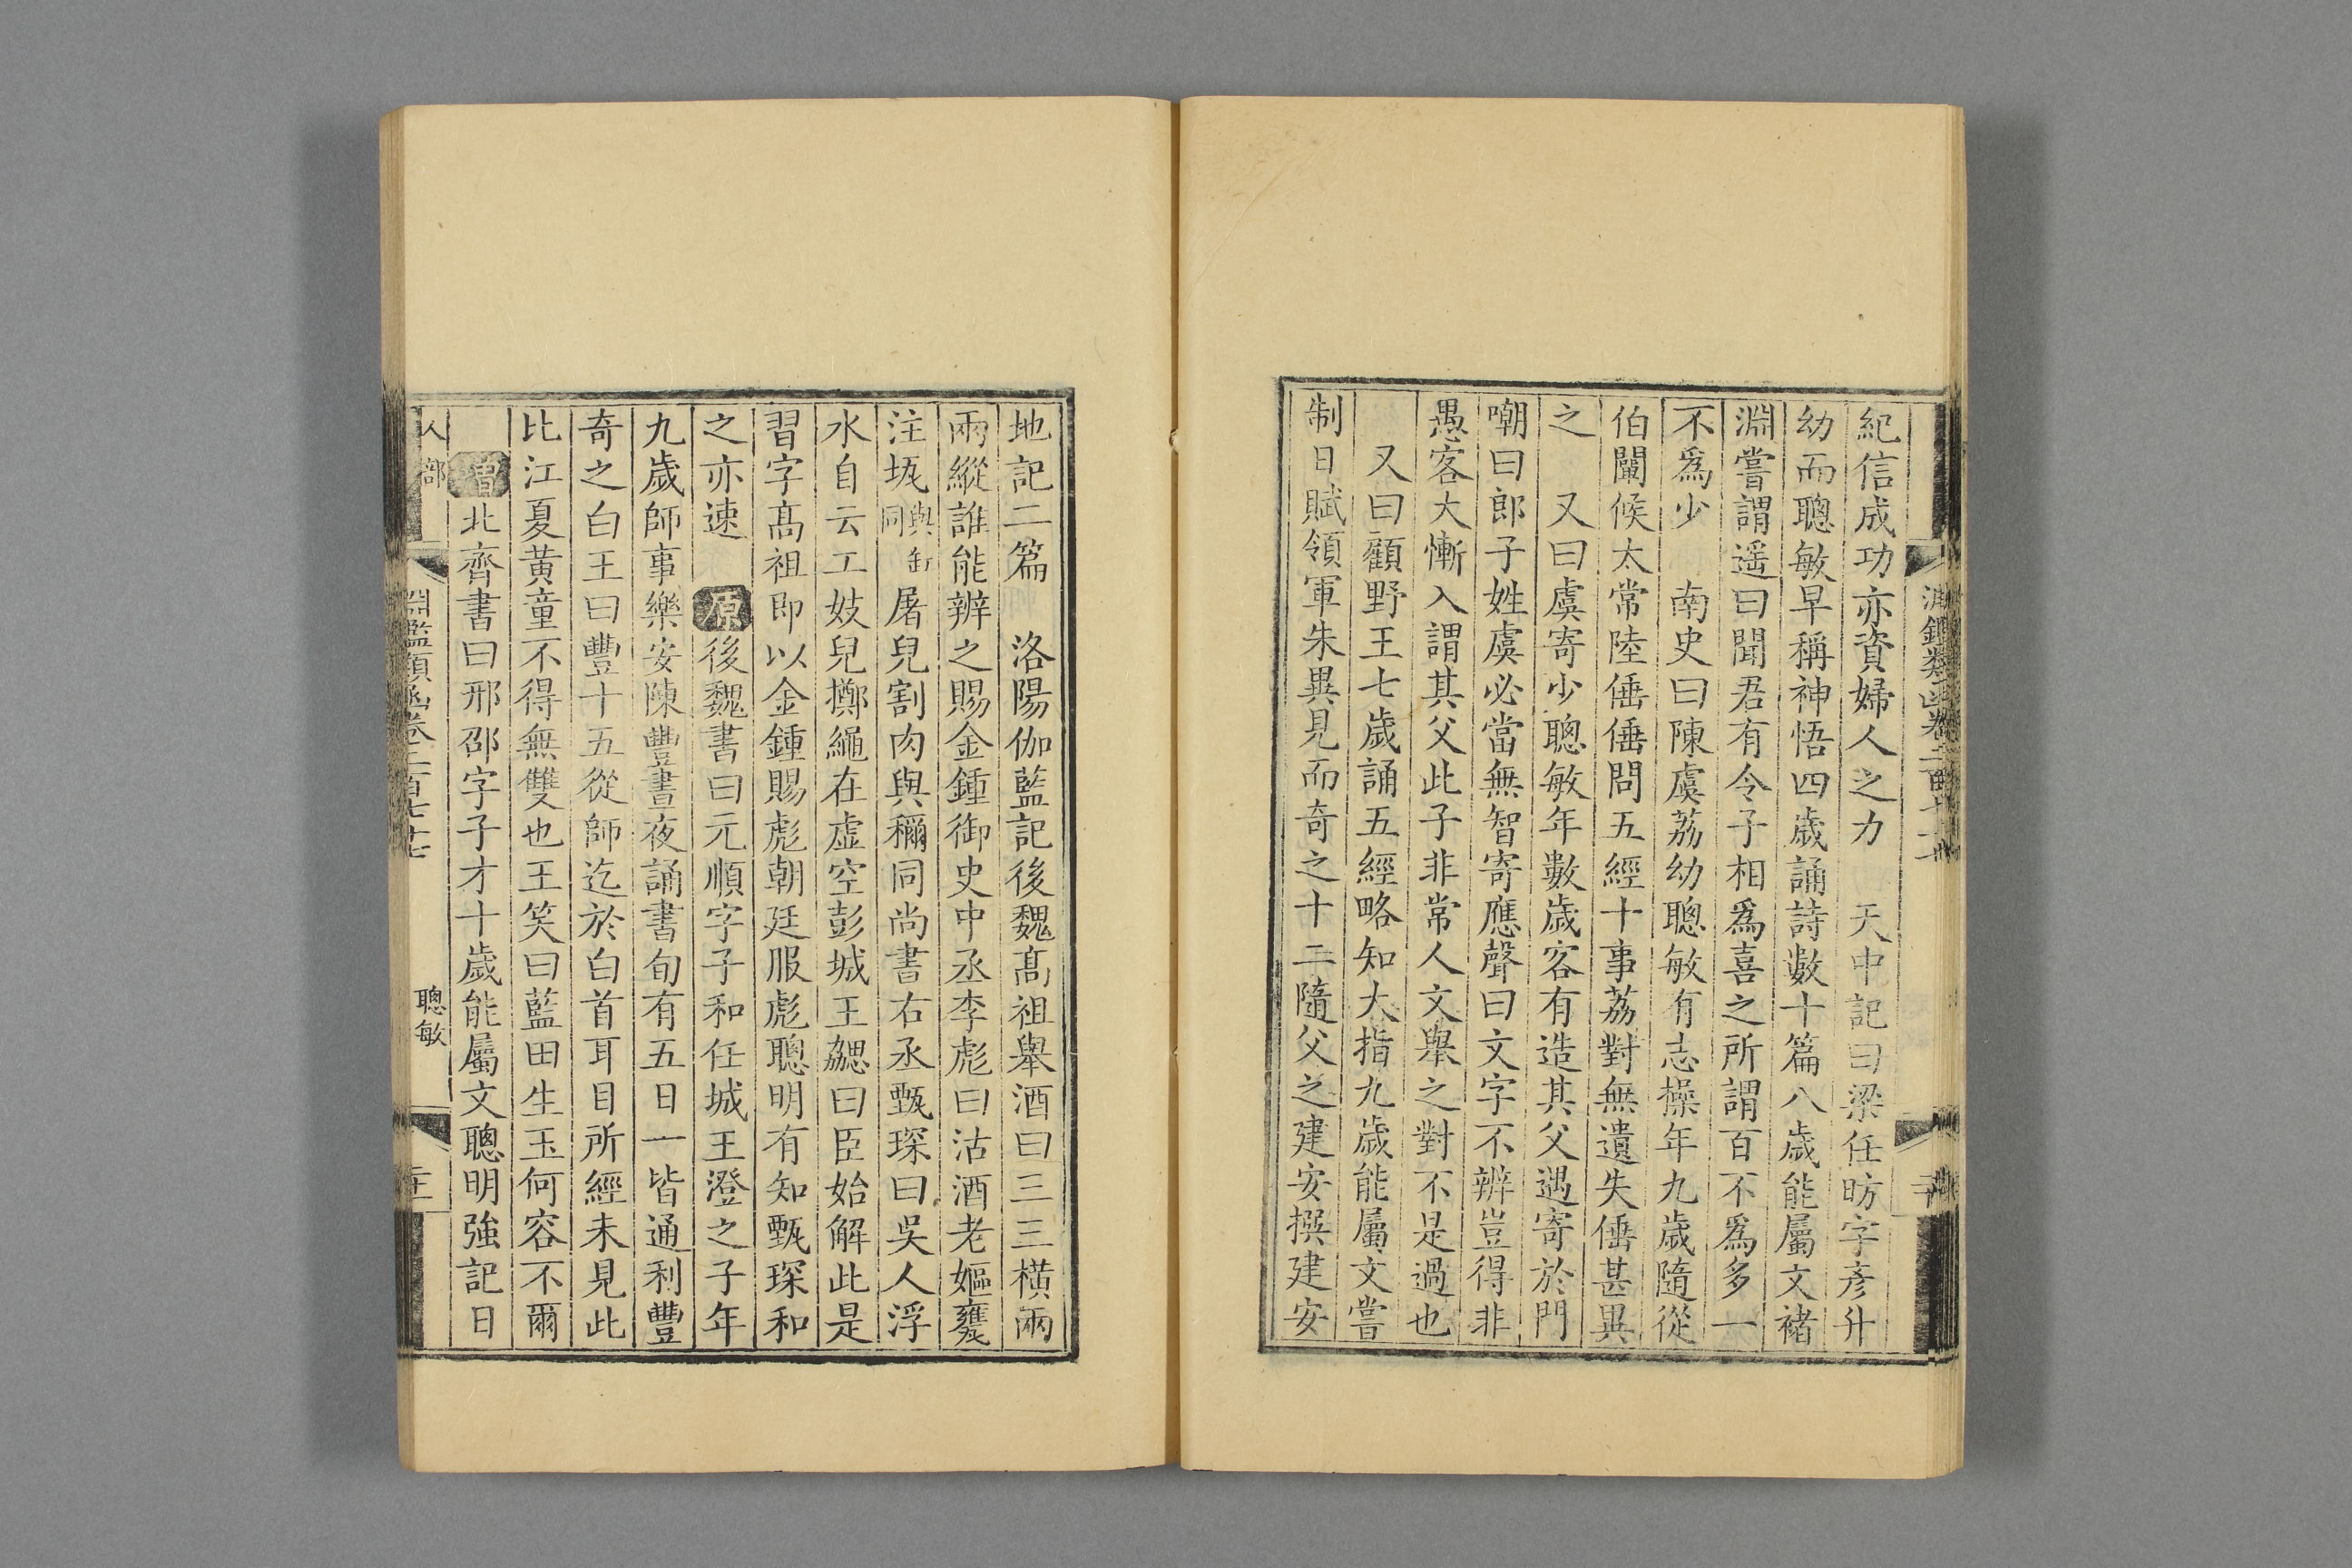 紀信成功亦資婦人之力　天中記曰梁任昉字彥升
幼而聰敏早稱神悟四歲誦詩數十篇八歲能屬文褚
淵嘗謂遥曰聞君有令子相爲喜之所謂百不爲多一
不爲少　南史曰陳虞荔幼聰敏有志操年九歲隨從
伯闡候太常陸倕倕問五經十事荔對無遺失倕甚異
之　又曰虞寄少聰敏年數歲客有造其父遇寄於門
嘲曰郎子姓虞必當無智寄應聲曰文字不辨豈得非
愚客大慚入謂其父此子非常人文舉之對不是過也
又曰顧野王七歲誦五經略知大指九歲能屬文嘗
制日賦領軍朱异見而奇之十二隨父之建安撰建安
地記二篇　洛陽伽藍記後魏髙祖舉酒曰三三橫兩
兩縱誰能辨之賜金鍾御史中丞李彪曰沽酒老嫗甕
注㼛與缶同屠兒割肉與稱同尚書右丞甄琛曰吳人浮
水自云工妓兒擲繩在虛空彭城王勰曰臣始解此是
習字髙祖即以金鍾賜彪朝廷服彪聰明有知甄琛和
之亦速　原後魏書曰元順字子和任城王澄之子年
九歲師事樂安陳豐晝夜誦書旬有五日一皆通利豐
奇之白王曰豐十五從師迄於白首耳目所經未見此
比江夏黃童不得無雙也王笑曰藍田生玉何容不爾
增北齊書曰邢邵字子才十歲能屬文聰明強記日
人部
淵鑑類函卷二百七十七
聰敏